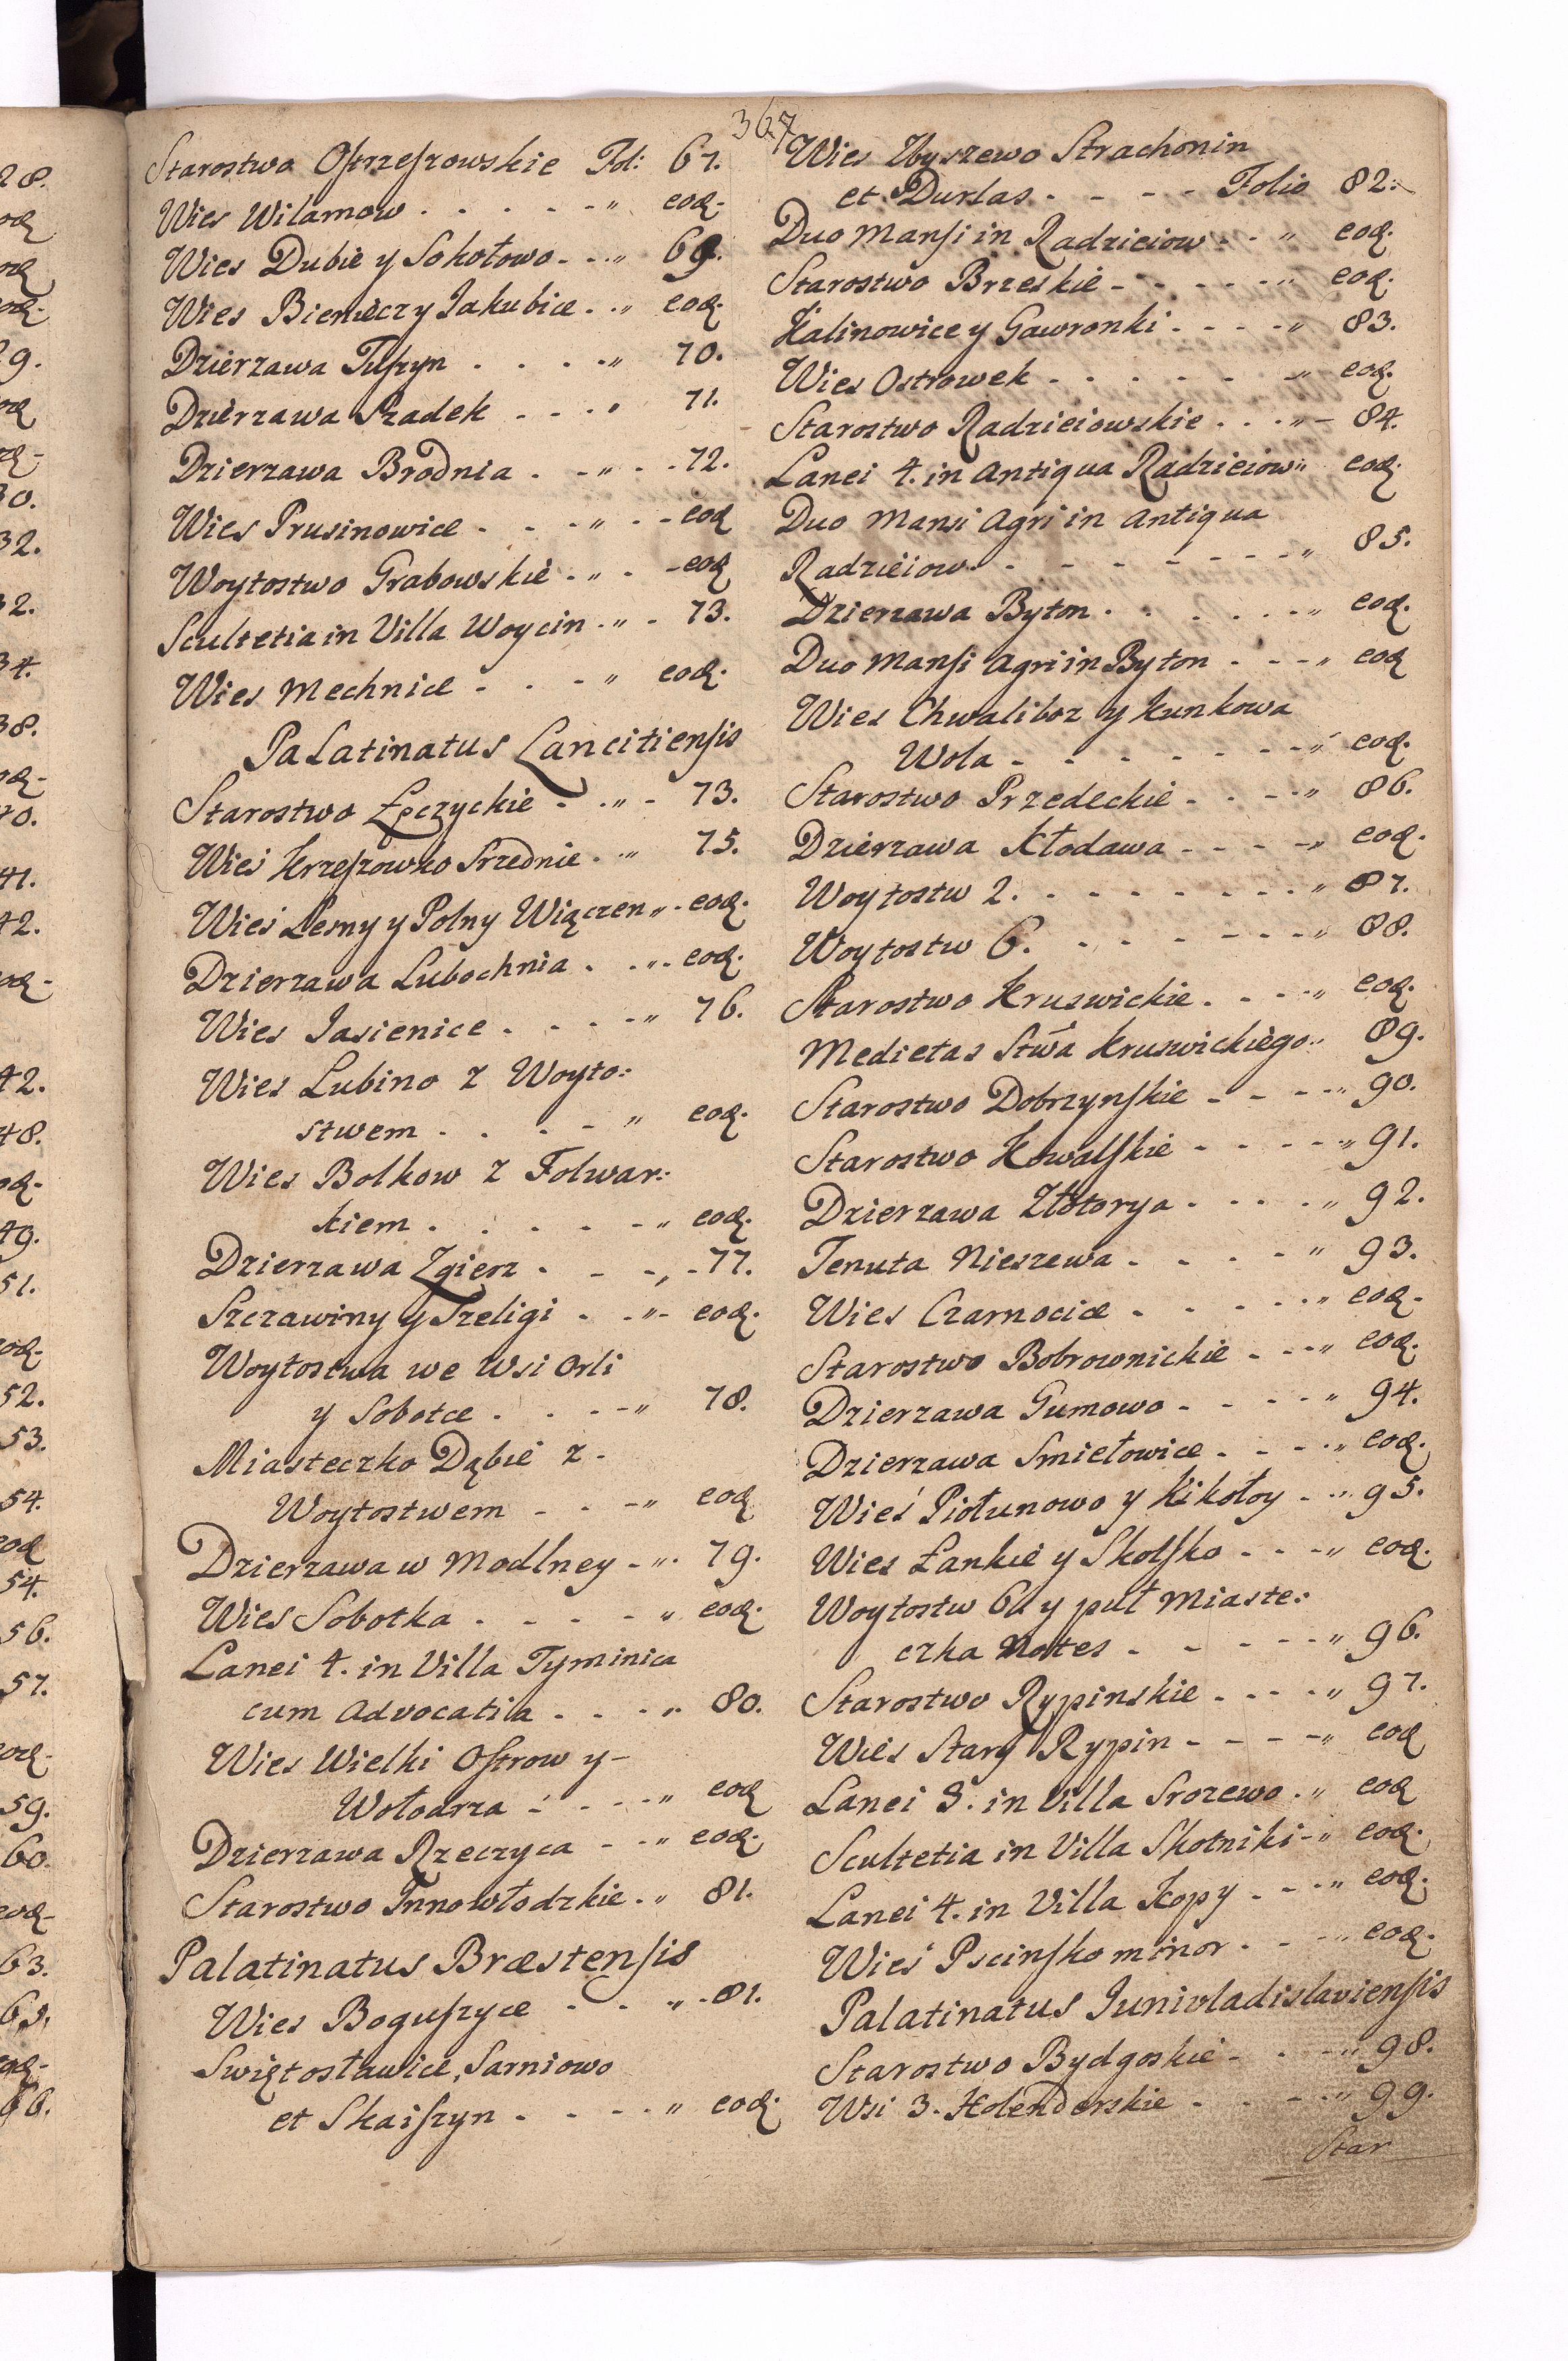 367
Starostwo Ostrzeszowskie Fol: 67.
Wies Wilamow . . . . - " eod.
Wies Dubie y Sokołowo - . " 69.
Wies Bieniecz y Jakubice . . " eod.
Dzierzawa Tuszyn . . . . " 70.
Dzierzawa Szadek . . . " 71.
Dzierzawa Brodnia . - " . - 72.
Wies Prusinowice . . . " . - eod
Woytostwo Grabowskie . " . - eod
Scultetia in Villa Woycin . " . 73.
Wies Mechnice . . . " eod.
Palatinatus Lancitiensis
Starostwo Łęczyckie . . " . 73.
Wieś Krzeszowko Srzednie . " 75.
Wieś Lesny y Polny Wiączen " . eod.
Dzierzawa Lubochnia . . " . eod.
Wies Jasienice . . . . " 76.
Wies Lubino z Woyto:
stwem . . . . " eod.
Wies Bolkow z Folwar:
kiem . . . . . " eod.
Dzierzawa Zgierz . - - , - 77.
Szczawiny y Szeligi . . " - eod.
Woytostwa we Wsi Orli
y Sobotce . . . - " 78.
Miasteczko Dąbie z -
Woytostwem . . . " eod
Dzierzawa w Modlney - " . 79.
Wies Sobotka . . . . " eod.
Lanei 4. in Villa Tyminica
cum Advocatia . . . " 80.
Wies Wielki Ostrow y -
Wołodrza . . . . " eod
Dzierzawa Rzeczyca - . " eod.
Starostwo Innowłodzkie . " 81.
Palatinatus Bræstensis
Wies Boguszyce . . . " . 81.
Swiętosławice, Sarniowo
et Skaiszyn . . . . " eod.
Wies Zbyszewo Strachonin
et Durlas . . - - - Folio 82.
Duo Mansi in Radzieiow . . " eod.
Starostwo Brzeskie - . . . . " eod.
Kalinowice y Gawronki . . . . " 83.
Wies Ostrowek . . . . . . " eod.
Starostwo Radzieiowskie . . . " - 84.
Lanei 4. in Antiqua Radzieiow " eod.
Duo Mansi Agri in Antiqua
Radzieiow . . . . . . . " 85.
Dzierzawa Byton . . . . . . " eod.
Duo Mansi Agri in Byton . . . " eod
Wies Chwaliboz y Kunkowa
Wola . . . . . . . " eod.
Starostwo Przedeckie . . . . " 86.
Dzierzawa Kłodawa . . . . " eod.
Woytostw 2. . . . . . . . " 87.
Woytostw 6. . . . . . . . " 88.
Starostwo Kruszwickie . . . . " eod.
Medietas Stwa Kruswickiego " 89.
Starostwo Dobrzynskie . . . . " 90.
Starostwo Kowalskie . . . . . " 91.
Dzierzawa Złotorya . . . . " 92.
Tenuta Nieszewa . . . . " 93.
Wies Czarnocice . . . . . " eod.
Starostwo Bobrownickie . . . " eod.
Dzierzawa Gumowo . . . . " 94.
Dzierzawa Smiełowice . . . . " eod.
Wieś Piołunowo y Kikoły . . " 95.
Wies Łankie y Skolsko . . . " eod.
Woytostw 6u y puł Miaste:
czka Notes . . . . . . " 96.
Starostwo Rypinskie . . . . " 97.
Wies Stary Rypin . . . . . " eod
Lanei 3. in Villa Srozewo . " eod
Scultetia in Villa Skotniki - " eod.
Lanei 4. in Villa Kopy . . . " eod.
Wieś Pscinsko minor . . . " eod.
Palatinatus Junivladislaviensis
Starostwo Bydgoskie . . . " 98.
Wsi 3. Holenderskie . . . . " 99.
Star